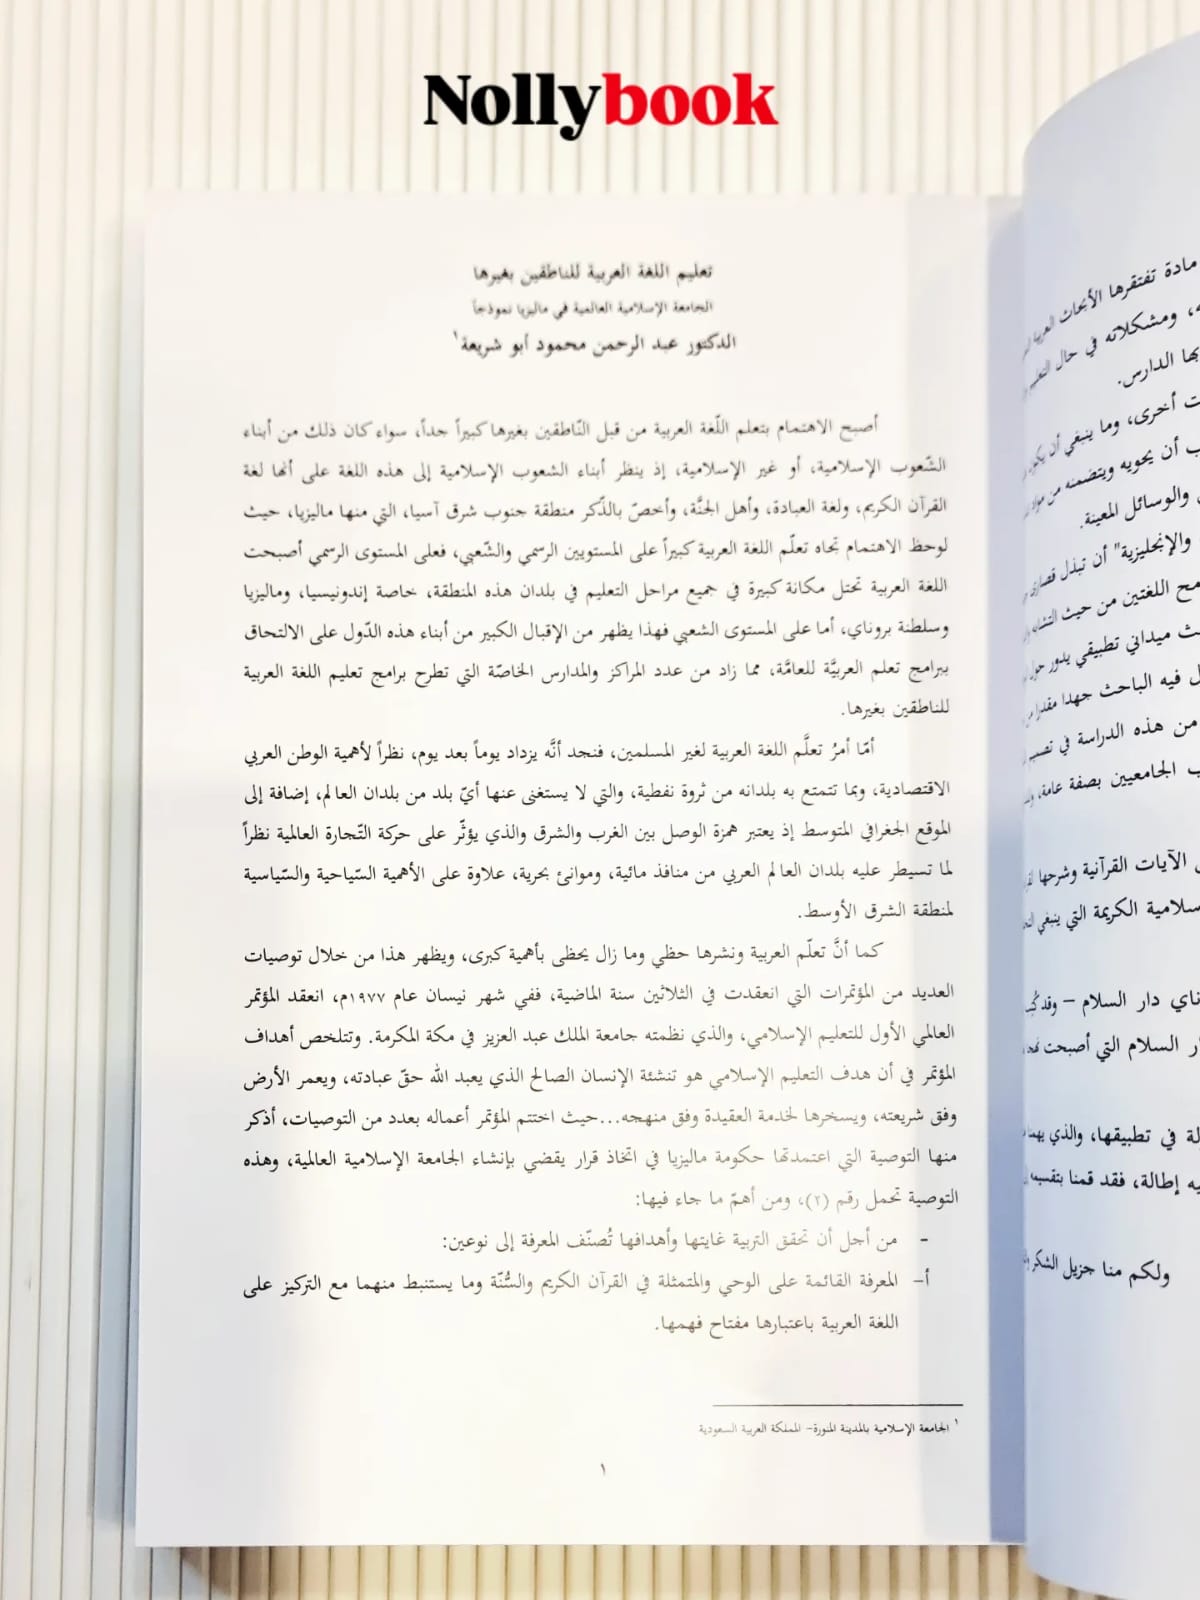 Nollybook
تعليم اللغة العربية للناطقين بغيرها
الجامعة الإسلامية العالمية في ماليزيا نموذجاً
الدكتور عبد الرحمن محمود أبو شريعة١
أصبح الاهتمام بتعلم اللّغة العربية من قبل النّاطقين بغيرها كبيراً جداً، سواء كان ذلك من أبناء
الشّعوب الإسلامية، أو غير الإسلامية، إذ ينظر أبناء الشعوب الإسلامية إلى هذه اللغة على أنها لغة
القرآن الكريم، ولغة العبادة، وأهل الجنَّة، وأخصّ بالذّكر منطقة جنوب شرق آسيا، التي منها ماليزيا، حيث
لوحظ الاهتمام تجاه تعلّم اللغة العربية كبيراً على المستويين الرسمي والشّعبي، فعلى المستوى الرسمي أصبحت
اللغة العربية تحتل مكانة كبيرة في جميع مراحل التعليم في بلدان هذه المنطقة، خاصة إندونيسيا، وماليزيا
وسلطنة بروناي، أما على المستوى الشعبي فهذا يظهر من الإقبال الكبير من أبناء هذه الدّول على الالتحاق
ببرامج تعلم العربيَّة للعامَّة، مما زاد من عدد المراكز والمدارس الخاصّة التي تطرح برامج تعليم اللغة العربية
للناطقين بغيرها.
أمّا أمرُ تعلَّم اللغة العربية لغير المسلمين، فنجد أنَّه يزداد يوماً بعد يوم، نظراً لأهمية الوطن العربي
الاقتصادية، وبما تتمتع به بلدانه من ثروة نفطية، والتي لا يستغنى عنها أيّ بلد من بلدان العالم، إضافة إلى
الموقع الجغرافي المتوسط إذ يعتبر همزة الوصل بين الغرب والشرق والذي يؤثّر على حركة التّجارة العالمية نظراً
لما تسيطر عليه بلدان العالم العربي من منافذ مائية، وموانئ بحرية، علاوة على الأهمية السّياحية والسّياسية
لمنطقة الشرق الأوسط.
كما أنَّ تعلّم العربية ونشرها حظي وما زال يحظى بأهمية كبرى، ويظهر هذا من خلال توصيات
العديد من المؤتمرات التي انعقدت في الثلاثين سنة الماضية، ففي شهر نيسان عام ١٩٧٧م، انعقد المؤتمر
العالمي الأول للتعليم الإسلامي، والذي نظمته جامعة الملك عبد العزيز في مكة المكرمة. وتتلخص أهداف
المؤتمر في أن هدف التعليم الإسلامي هو تنشئة الإنسان الصالح الذي يعبد الله حقّ عبادته، ويعمر الأرض
وفق شريعته، ويسخرها لخدمة العقيدة وفق منهجه...حيث اختتم المؤتمر أعماله بعدد من التوصيات، أذكر
منها التوصية التي اعتمدتها حكومة ماليزيا في اتخاذ قرار يقضي بإنشاء الجامعة الإسلامية العالمية، وهذه
التوصية تحمل رقم (٢)، ومن أهمّ ما جاء فيها:
- من أجل أن تحقق التربية غايتها وأهدافها تُصنّف المعرفة إلى نوعين:
أ- المعرفة القائمة على الوحي والمتمثلة في القرآن الكريم والسُّنّة وما يستنبط منهما مع التركيز على
اللغة العربية باعتبارها مفتاح فهمها.
١ الجامعة الإسلامية بالمدينة المنورة- المملكة العربية السعودية
١
مادة تفتقرها الأبحاث العربية
، ومشكلاته في حال التعليم
بها الدارس.
ت أخرى، وما ينبغي أن يكون
ب أن يحويه ويتضمنه من مواد
والوسائل المعينة.
والإنجليزية" أن تبذل قصارى
مح اللغتين من حيث التشابه
ث ميداني تطبيقي يدور حول
ل فيه الباحث جهدا مقدرا
من هذه الدراسة في تصميم
ب الجامعيين بصفة عامة،
الآيات القرآنية وشرحها
سلامية الكريمة التي ينبغي
ناي دار السلام – وقد
ار السلام التي أصبحت
لة في تطبيقها، والذي يهمنا
يه إطالة، فقد قمنا بتقسيمه
ولكم منا جزيل الشكر